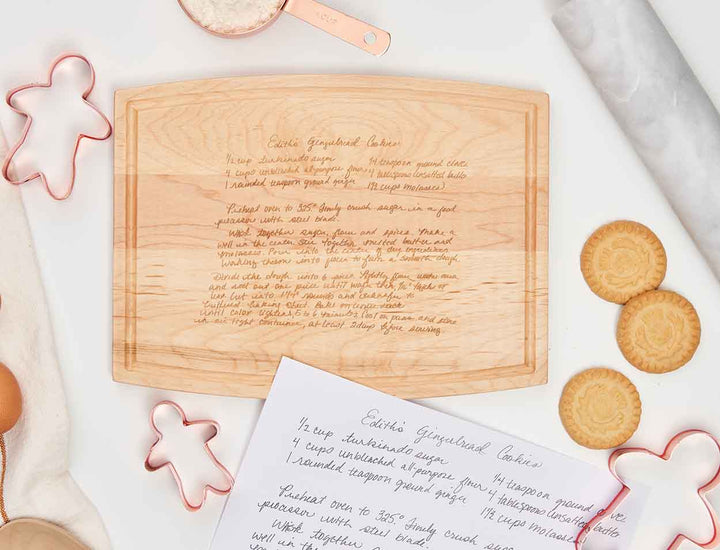 Edith's Gingerbread Cookies
1/2 cup turbinado sugar
1/4 teaspoon ground clove
4 cups unbleached all-purpose flour
4 tablespoons unsalted butter
1 rounded teaspoon ground ginger
1 1/2 cups molasses
Preheat oven to 325° Finely crush sugar in a food
processor with steel blade.
Whisk together sugar, flour and spices. Make a
well in the center. Stir together melted butter and
molasses. Pour into the center of dry ingredients
working them into flour to form a smooth dough.
Divide the dough into 6 Lightly flour
and roll out one piece until thin,
Cut into rounds and transfer to
buttered baking sheet. Bake on rack
until color lightens, 5 to 6 minutes. Cool on pans and store
in air tight container, at least 2 days before serving.
Edith's Gingerbread Cookies
1/2 cup turbinado sugar
1/4 teaspoon ground
4 cups unbleached all-purpose flour
4 tablespoons unsalted butter
1 rounded teaspoon ground ginger
1 1/2 cups molasses
Preheat oven to 325° Finely crush sug
processor with steel blade.
Whisk together sugar
well in the